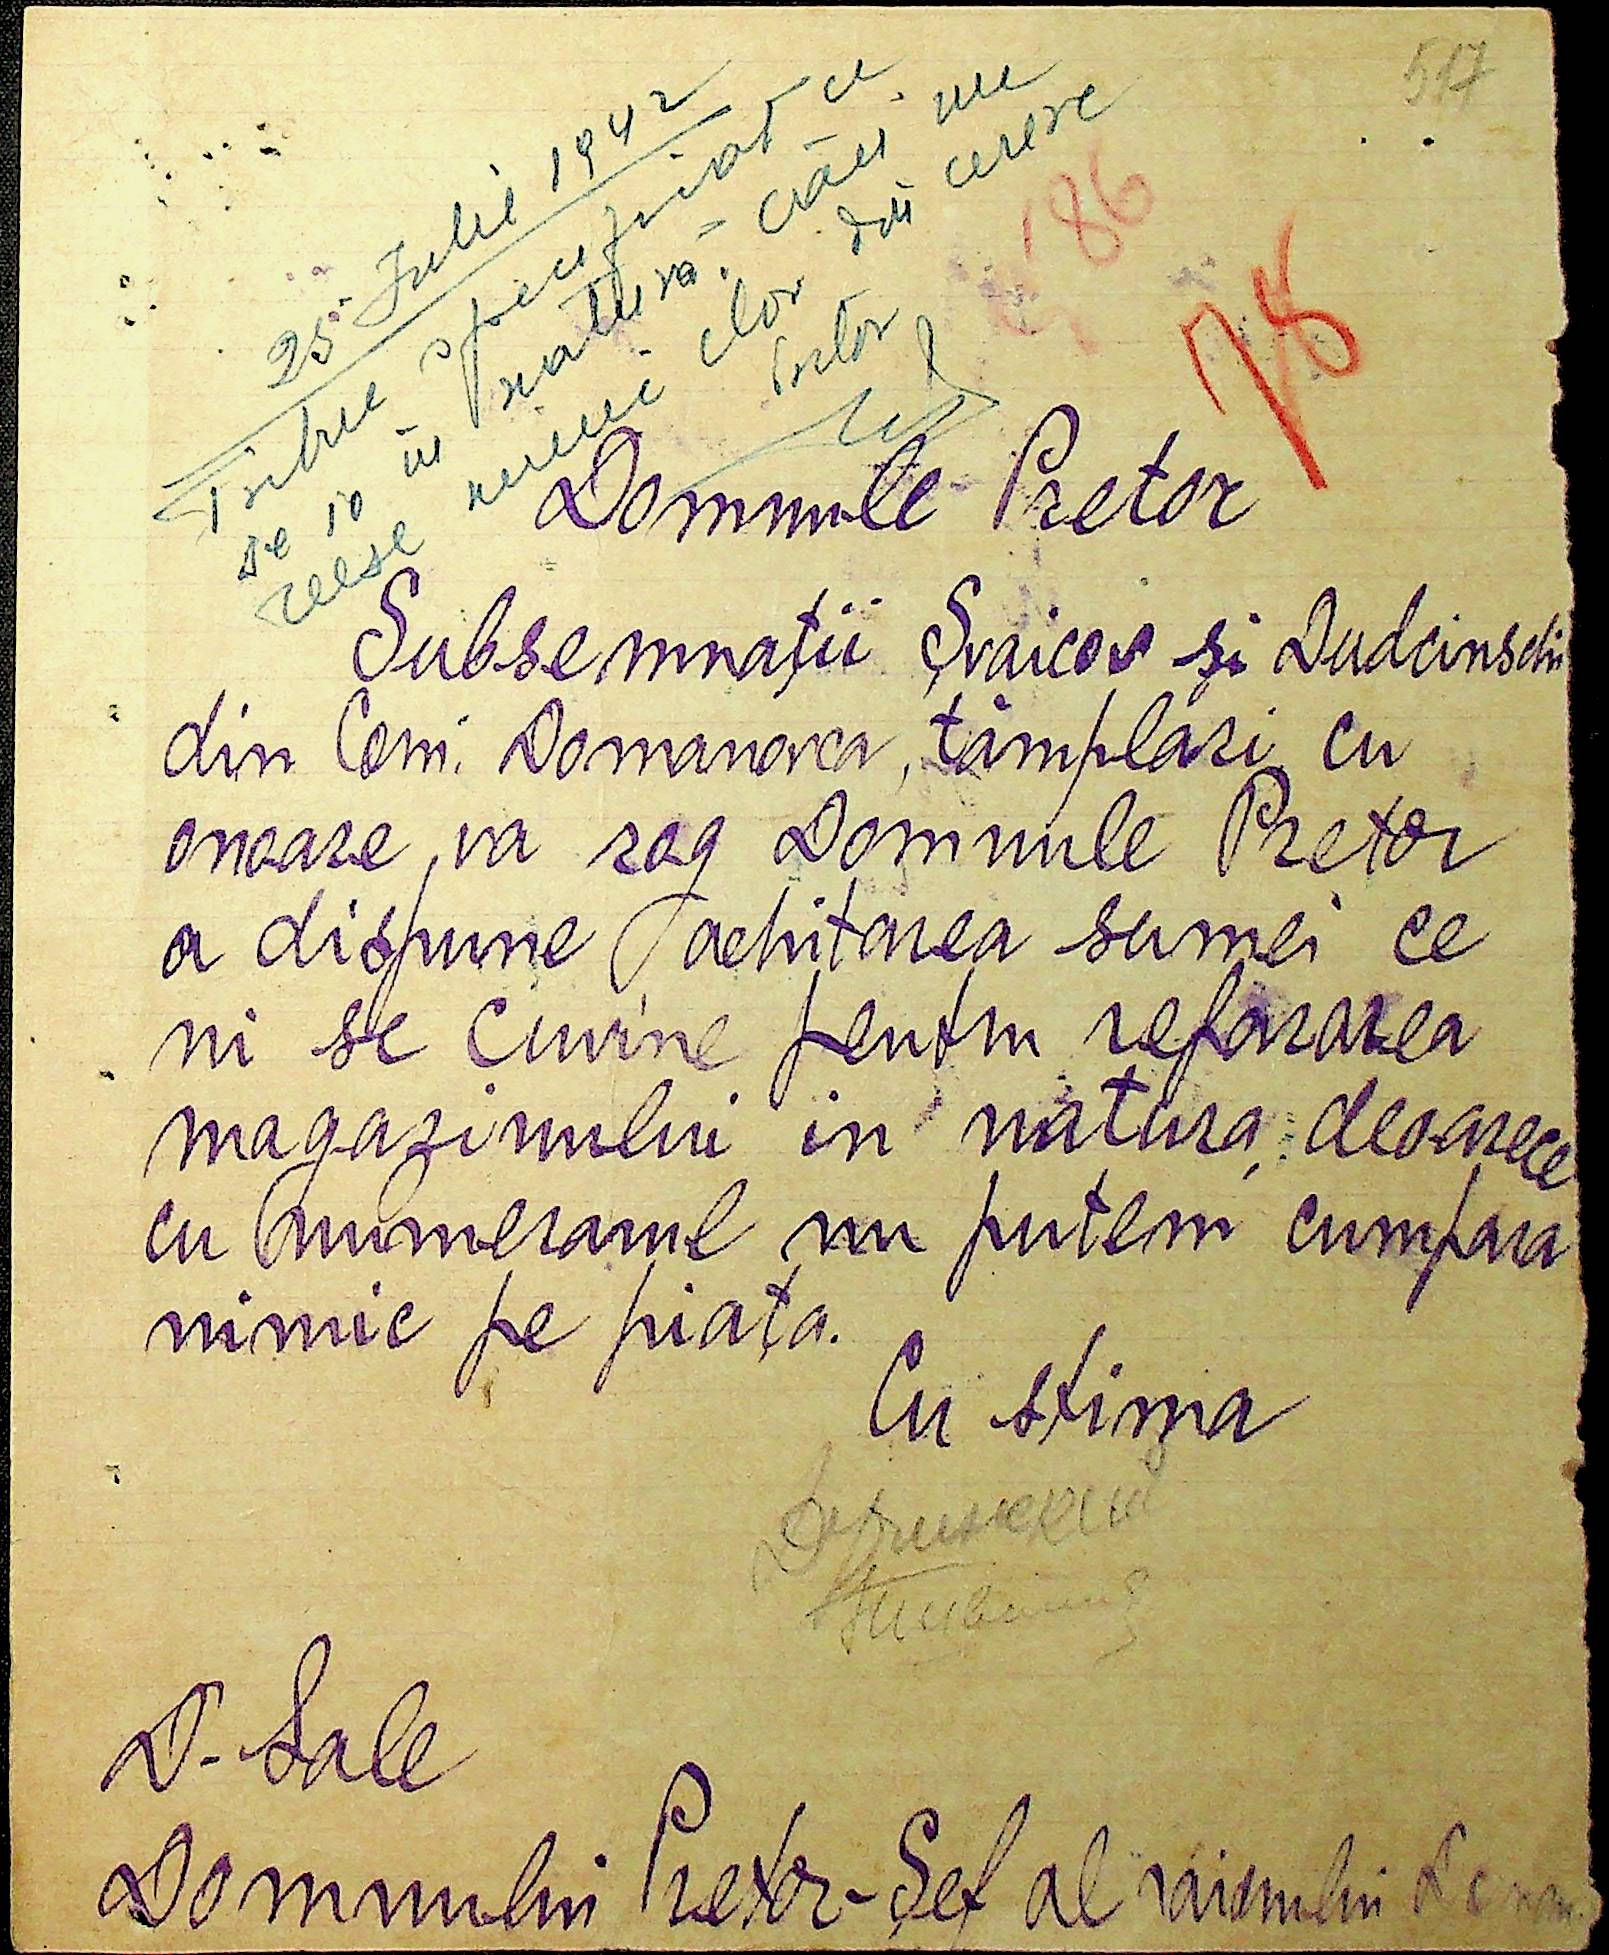 517
25 Iulie 1942
Trebue specificat ce
se in natura - căci nu
reese din cerere
186
78
Domnule Pretor
Subsemnații Șvaicov și Dudcinschi
din Com. Domanovca, tâmplări cu
onoare va rog Domnule Pretor
a dispune achitarea sumei ce
ni se cuvine pentru repararea
magazinului in natura, deoarece
cu numerarul nu putem cumpara
nimic pe piața.
Cu stima
D. Sale
Domnului Pretor-Șef al raionului